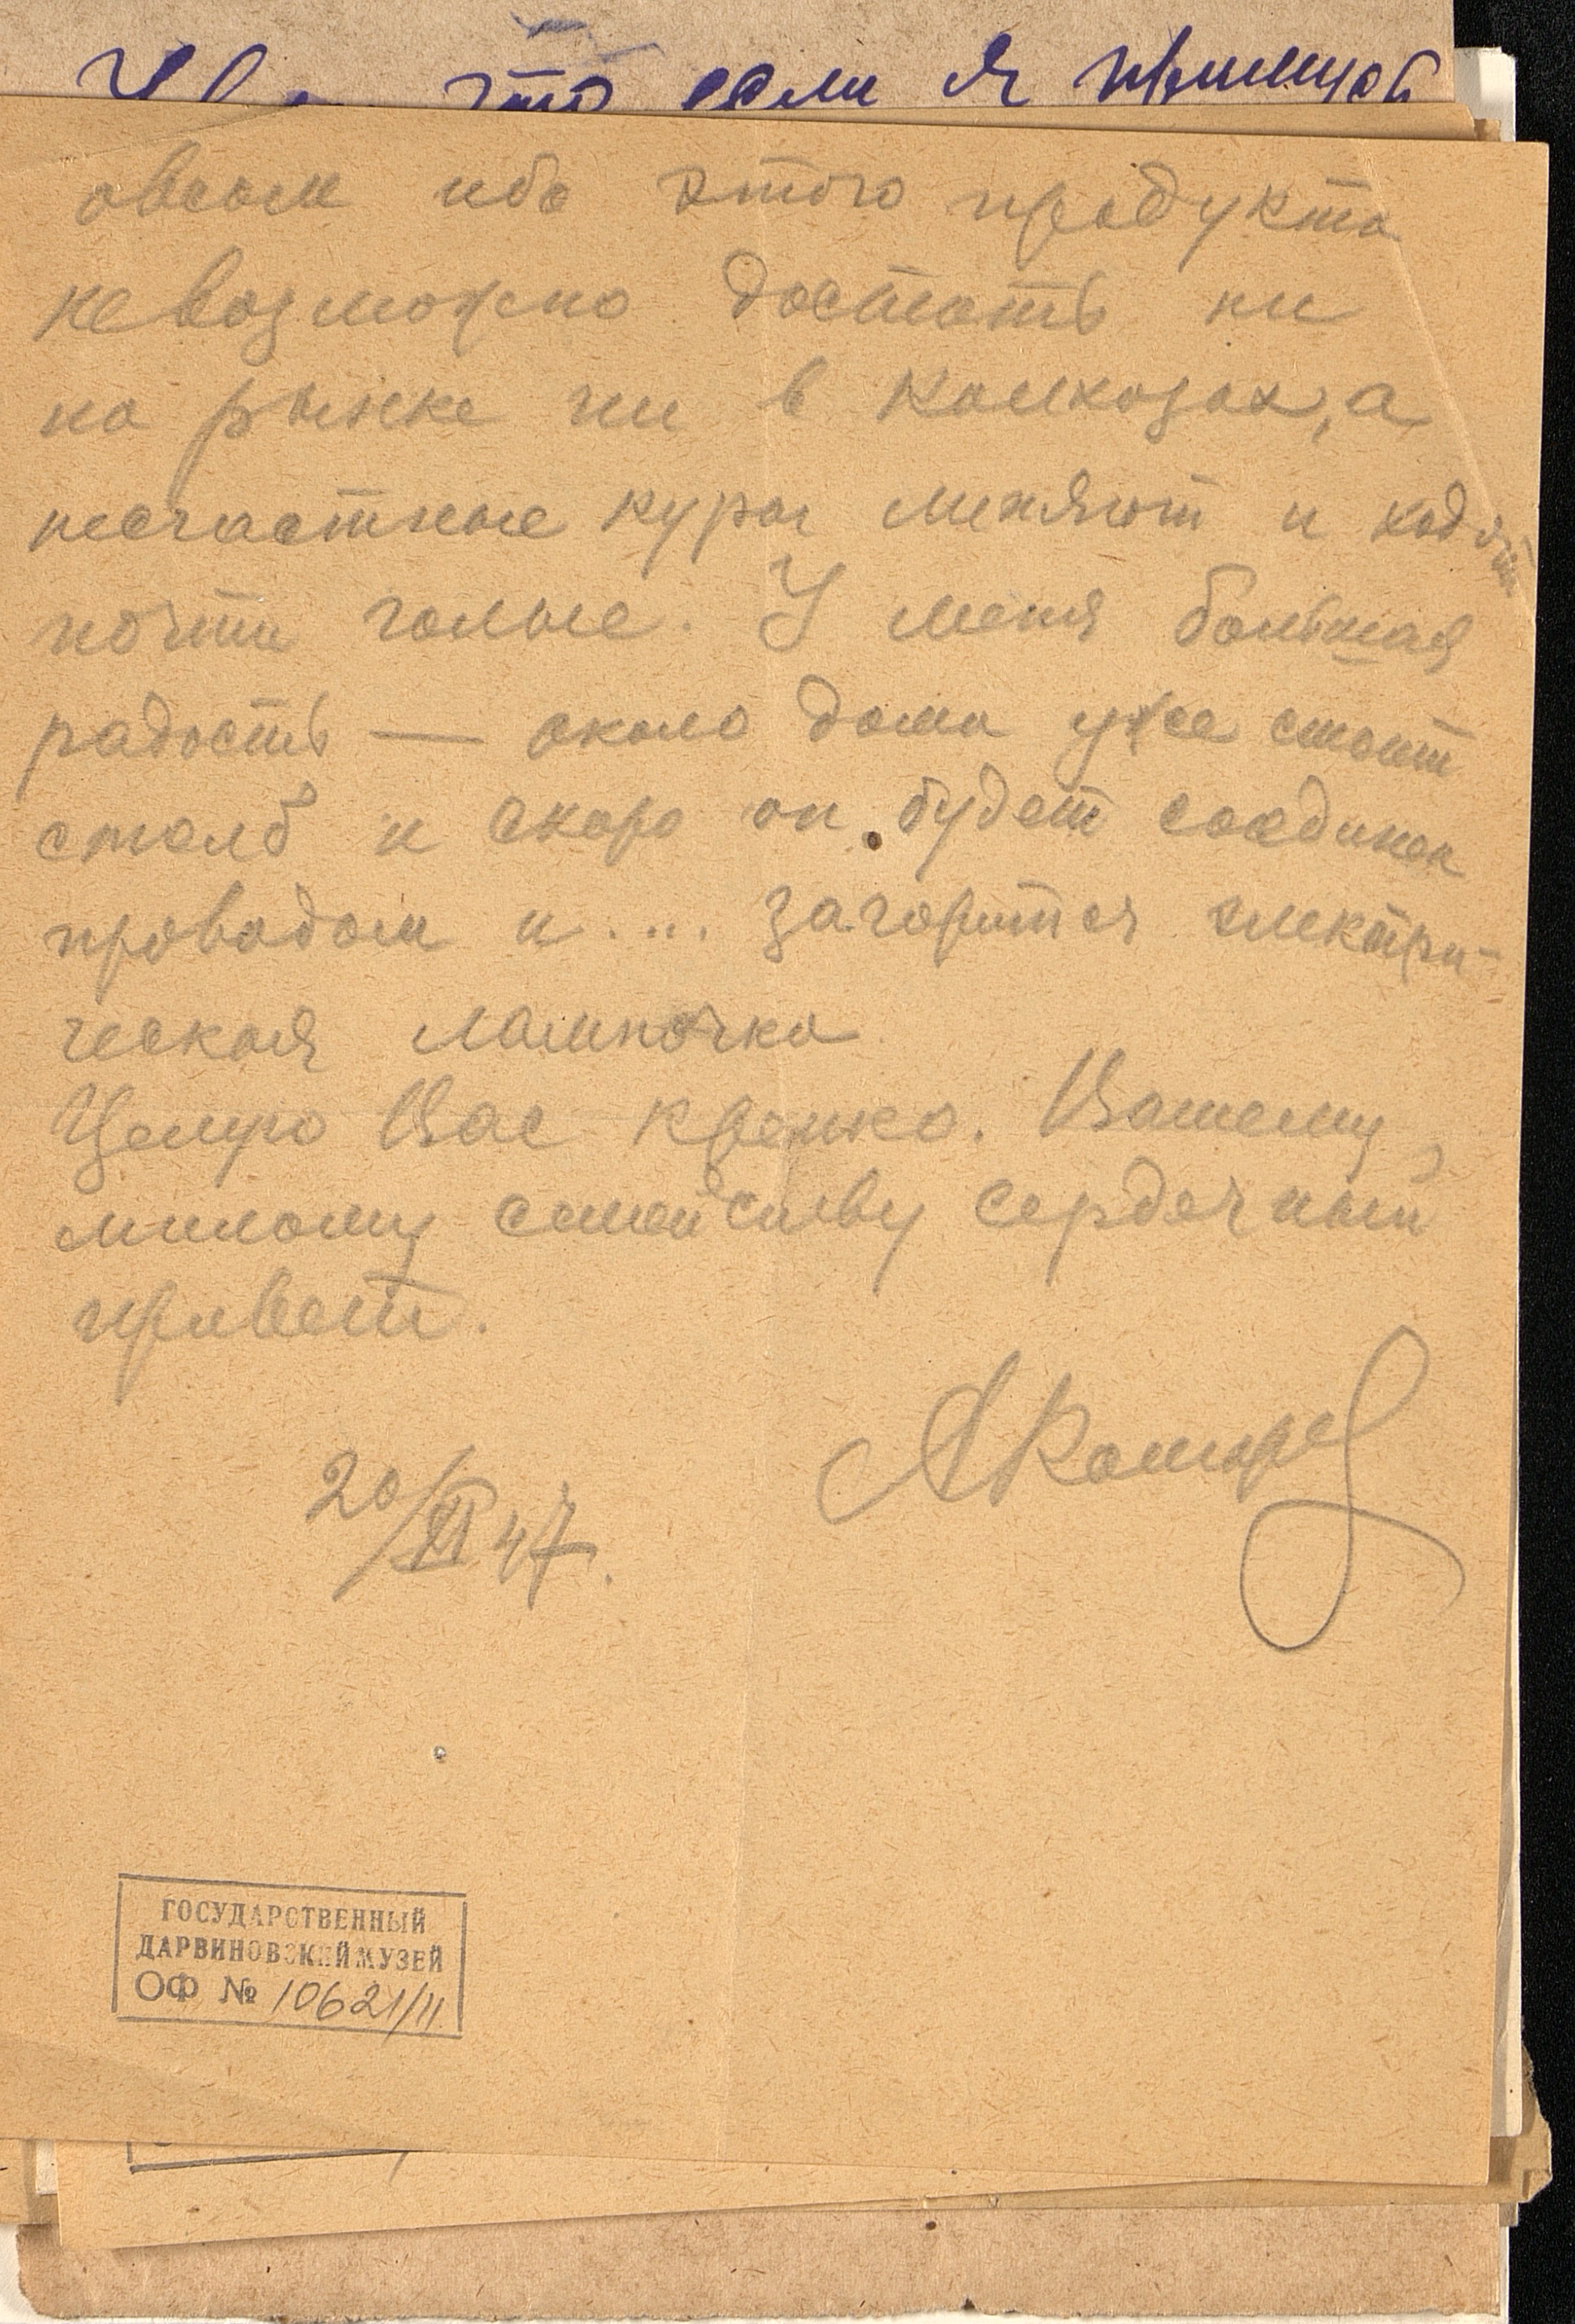 что если я
овсом ибо этого продукта
невозможно достать ни
на рынке ни в колхозах, а
несчастные куры линяют и ходят
почти голые. У меня большая
радость — около дома уже стоит
столб и скоро он будет соединен
проводом и .... загорится электри-
ческая лампочка
Целую Вас крепко. Вашему
милому семейству сердечный
привет.
АКомаров
20/XI 47.
ГОСУДАРСТВЕННЫЙ
ДАРВИНОВСКИЙ МУЗЕЙ
ОФ № 10621/11